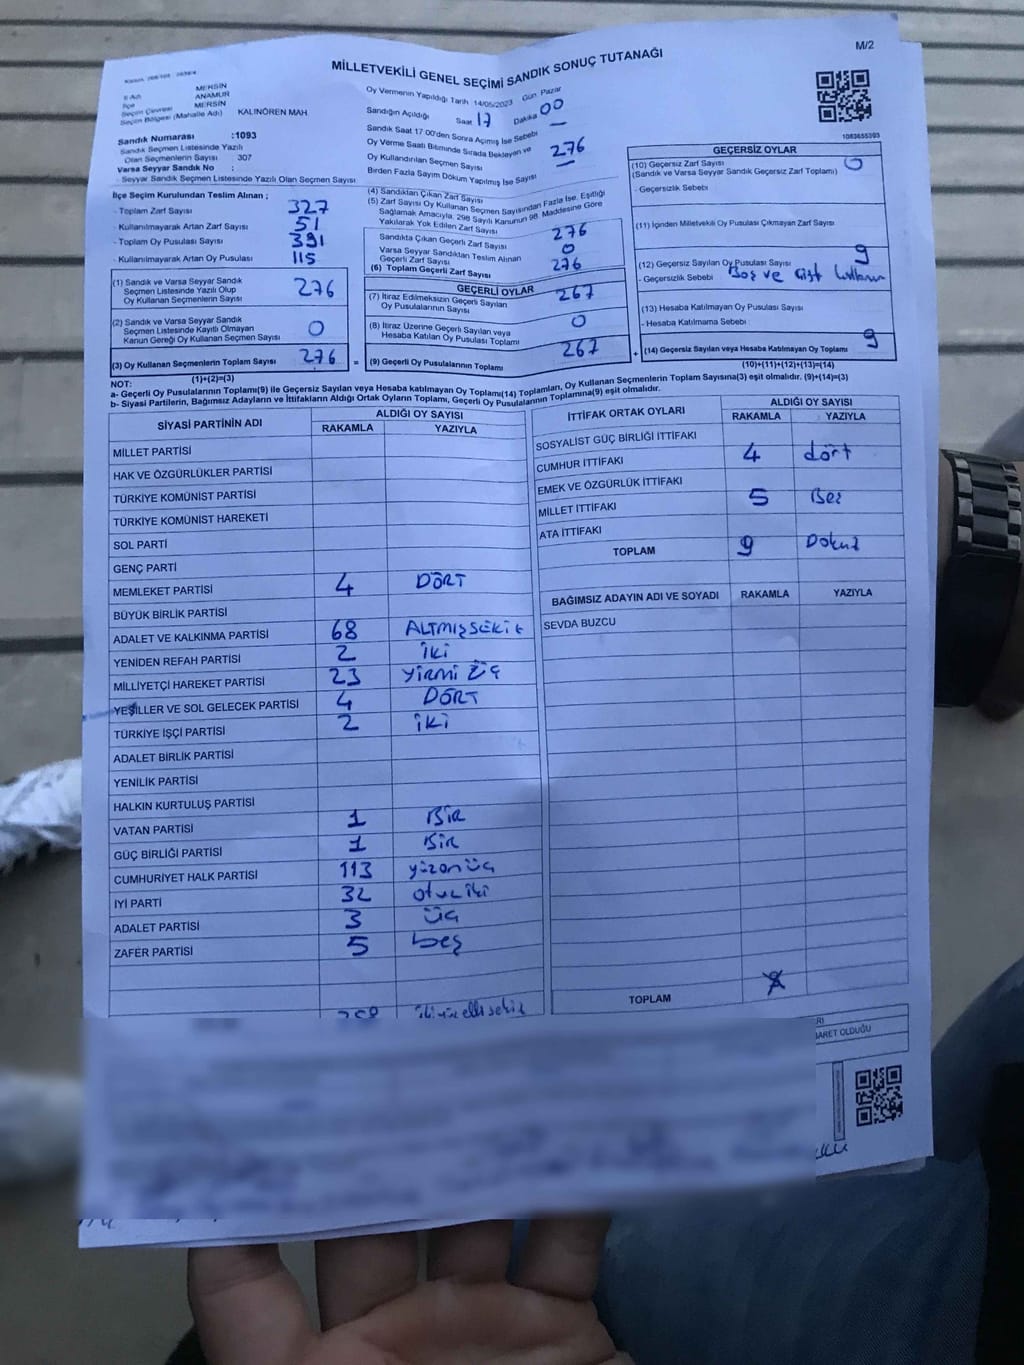 M/2
MİLLETVEKİLİ GENEL SEÇİMİ SANDIK SONUÇ TUTANAĞI
İl Adı MERSİN
İlçe ANAMUR
Seçim Çevresi MERSİN
Seçim Bölgesi (Mahalle Adı) KALINÖREN MAH
Sandık Numarası :1093
Sandık Seçmen Listesinde Yazılı
Olan Seçmenlerin Sayısı : 307
Varsa Seyyar Sandık No :
- Seyyar Sandık Seçmen Listesinde Yazılı Olan Seçmen Sayısı
İlçe Seçim Kurulundan Teslim Alınan ;
- Toplam Zarf Sayısı 327
- Kullanılmayarak Artan Zarf Sayısı 51
- Toplam Oy Pusulası Sayısı 391
- Kullanılmayarak Artan Oy Pusulası 115
(1) Sandık ve Varsa Seyyar Sandık
Seçmen Listesinde Yazılı Olup
Oy Kullanan Seçmenlerin Sayısı 276
(2) Sandık ve Varsa Seyyar Sandık
Seçmen Listesinde Kayıtlı Olmayan
Kanun Gereği Oy Kullanan Seçmen Sayısı 0
(3) Oy Kullanan Seçmenlerin Toplam Sayısı 276
(1)+(2)=(3)
Oy Vermenin Yapıldığı Tarih 14/05/2023 Gün Pazar
Sandığın Açıldığı Saat 17 Dakika 00
Sandık Saat 17:00'den Sonra Açılmış İse Sebebi —
Oy Verme Saati Bitiminde Sırada Bekleyen ve
Oy Kullandırılan Seçmen Sayısı 276
Birden Fazla Sayım Döküm Yapılmış İse Sayısı —
(4) Sandıktan Çıkan Zarf Sayısı
(5) Zarf Sayısı Oy Kullanan Seçmen Sayısından Fazla İse, Eşitliği
Sağlamak Amacıyla, 298 Sayılı Kanunun 98. Maddesine Göre
Yakılarak Yok Edilen Zarf Sayısı
Sandıkta Çıkan Geçerli Zarf Sayısı 276
Varsa Seyyar Sandıktan Teslim Alınan
Geçerli Zarf Sayısı 0
(6) Toplam Geçerli Zarf Sayısı 276
GEÇERLİ OYLAR
(7) İtiraz Edilmeksizin Geçerli Sayılan
Oy Pusulalarının Sayısı 267
(8) İtiraz Üzerine Geçerli Sayılan veya
Hesaba Katılan Oy Pusulası Toplamı 0
= (9) Geçerli Oy Pusulalarının Toplamı 267
1083655393
GEÇERSİZ OYLAR
(10) Geçersiz Zarf Sayısı 0
(Sandık ve Varsa Seyyar Sandık Geçersiz Zarf Toplamı)
- Geçersizlik Sebebi
(11) İçinden Milletvekili Oy Pusulası Çıkmayan Zarf Sayısı
(12) Geçersiz Sayılan Oy Pusulası Sayısı 9
- Geçersizlik Sebebi Boş ve Çift
(13) Hesaba Katılmayan Oy Pusulası Sayısı
- Hesaba Katılmama Sebebi
+ (14) Geçersiz Sayılan veya Hesaba Katılmayan Oy Toplamı 9
(10)+(11)+(12)+(13)=(14)
NOT:
a- Geçerli Oy Pusulalarının Toplamı(9) ile Geçersiz Sayılan veya Hesaba katılmayan Oy Toplamı(14) Toplamları, Oy Kullanan Seçmenlerin Toplam Sayısına(3) eşit olmalıdır. (9)+(14)=(3)
b- Siyasi Partilerin, Bağımsız Adayların ve İttifakların Aldığı Ortak Oyların Toplamı, Geçerli Oy Pusulalarının Toplamına(9) eşit olmalıdır.
SİYASİ PARTİNİN ADI ALDIĞI OY SAYISI
RAKAMLA YAZIYLA
MİLLET PARTİSİ
HAK VE ÖZGÜRLÜKLER PARTİSİ
TÜRKİYE KOMÜNİST PARTİSİ
TÜRKİYE KOMÜNİST HAREKETİ
SOL PARTİ
GENÇ PARTİ
MEMLEKET PARTİSİ 4 DÖRT
BÜYÜK BİRLİK PARTİSİ
ADALET VE KALKINMA PARTİSİ 68 ALTMIŞSEKİZ
YENİDEN REFAH PARTİSİ 2 İKİ
MİLLİYETÇİ HAREKET PARTİSİ 23 Yirmi Üç
YEŞİLLER VE SOL GELECEK PARTİSİ 4 DÖRT
TÜRKİYE İŞÇİ PARTİSİ 2 İKİ
ADALET BİRLİK PARTİSİ
YENİLİK PARTİSİ
HALKIN KURTULUŞ PARTİSİ
VATAN PARTİSİ 1 BİR
GÜÇ BİRLİĞİ PARTİSİ 1 BİR
CUMHURİYET HALK PARTİSİ 113 yüzonüç
İYİ PARTİ 32 otuziki
ADALET PARTİSİ 3 üç
ZAFER PARTİSİ 5 beş
258 ikiyüzellisekiz
İTTİFAK ORTAK OYLARI ALDIĞI OY SAYISI
RAKAMLA YAZIYLA
SOSYALİST GÜÇ BİRLİĞİ İTTİFAKI
CUMHUR İTTİFAKI 4 dört
EMEK VE ÖZGÜRLÜK İTTİFAKI
MİLLET İTTİFAKI 5 Beş
ATA İTTİFAKI
TOPLAM 9 Dokuz
BAĞIMSIZ ADAYIN ADI VE SOYADI RAKAMLA YAZIYLA
SEVDA BUZCU
TOPLAM
ARET OLDUĞU